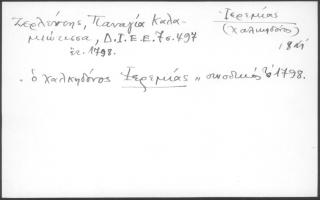 Ζερλέντης, Παναγία Καλα-
μιώτισσα, Δ.Ι.Ε.Ε. 7 σ. 497
ἔτ. 1798.
Ἱερεμίας
(Χαλκηδόνος)
ὁ Χαλκηδόνος Ἱερεμίας 1798.